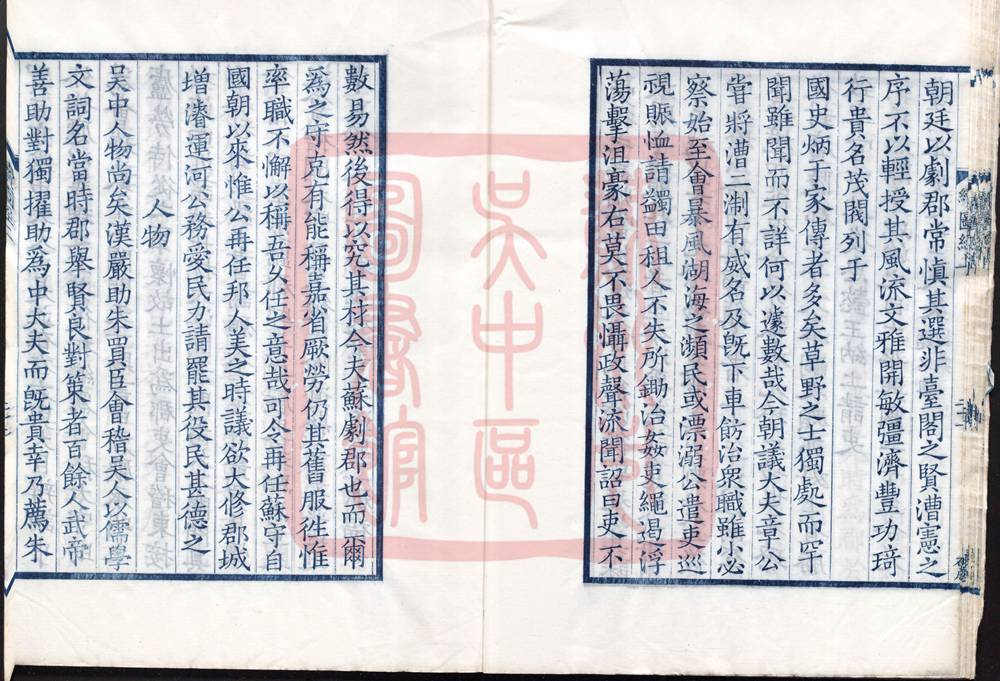 朝廷以劇郡常慎其選非臺閣之賢漕憲之
序不以輕授其風流文雅開敏彊濟豐功琦
行貴名茂閥列于
國史炳于家傳者多矣草野之士獨處而罕
聞雖聞而不詳何以遽數哉今朝議大夫章公
甞將漕二淛有威名及旣下車飭治衆職雖小必
察始至會暴風湖海之瀕民或漂溺公遣吏巡
視賑恤請蠲田租人不失所鋤治姦吏繩遏浮
蕩擊沮豪右莫不畏懾政聲流聞詔曰吏不
數易然後得以究其材今夫蘇劇郡也而爾
爲之守克有能稱嘉省厥勞仍其舊服往惟
率職不懈以稱吾久任之意哉可令再任蘇守自
國朝以來惟公再任邦人美之時議欲大修郡城
增濬運河公務愛民力請罷其役民甚德之
人物
吳中人物尚矣漢嚴助朱買臣會稽吳人以儒學
文詞名當時郡舉賢良對策者百餘人武帝
善助對獨擢助爲中大夫而旣貴幸乃薦朱
吳中區
圖書館